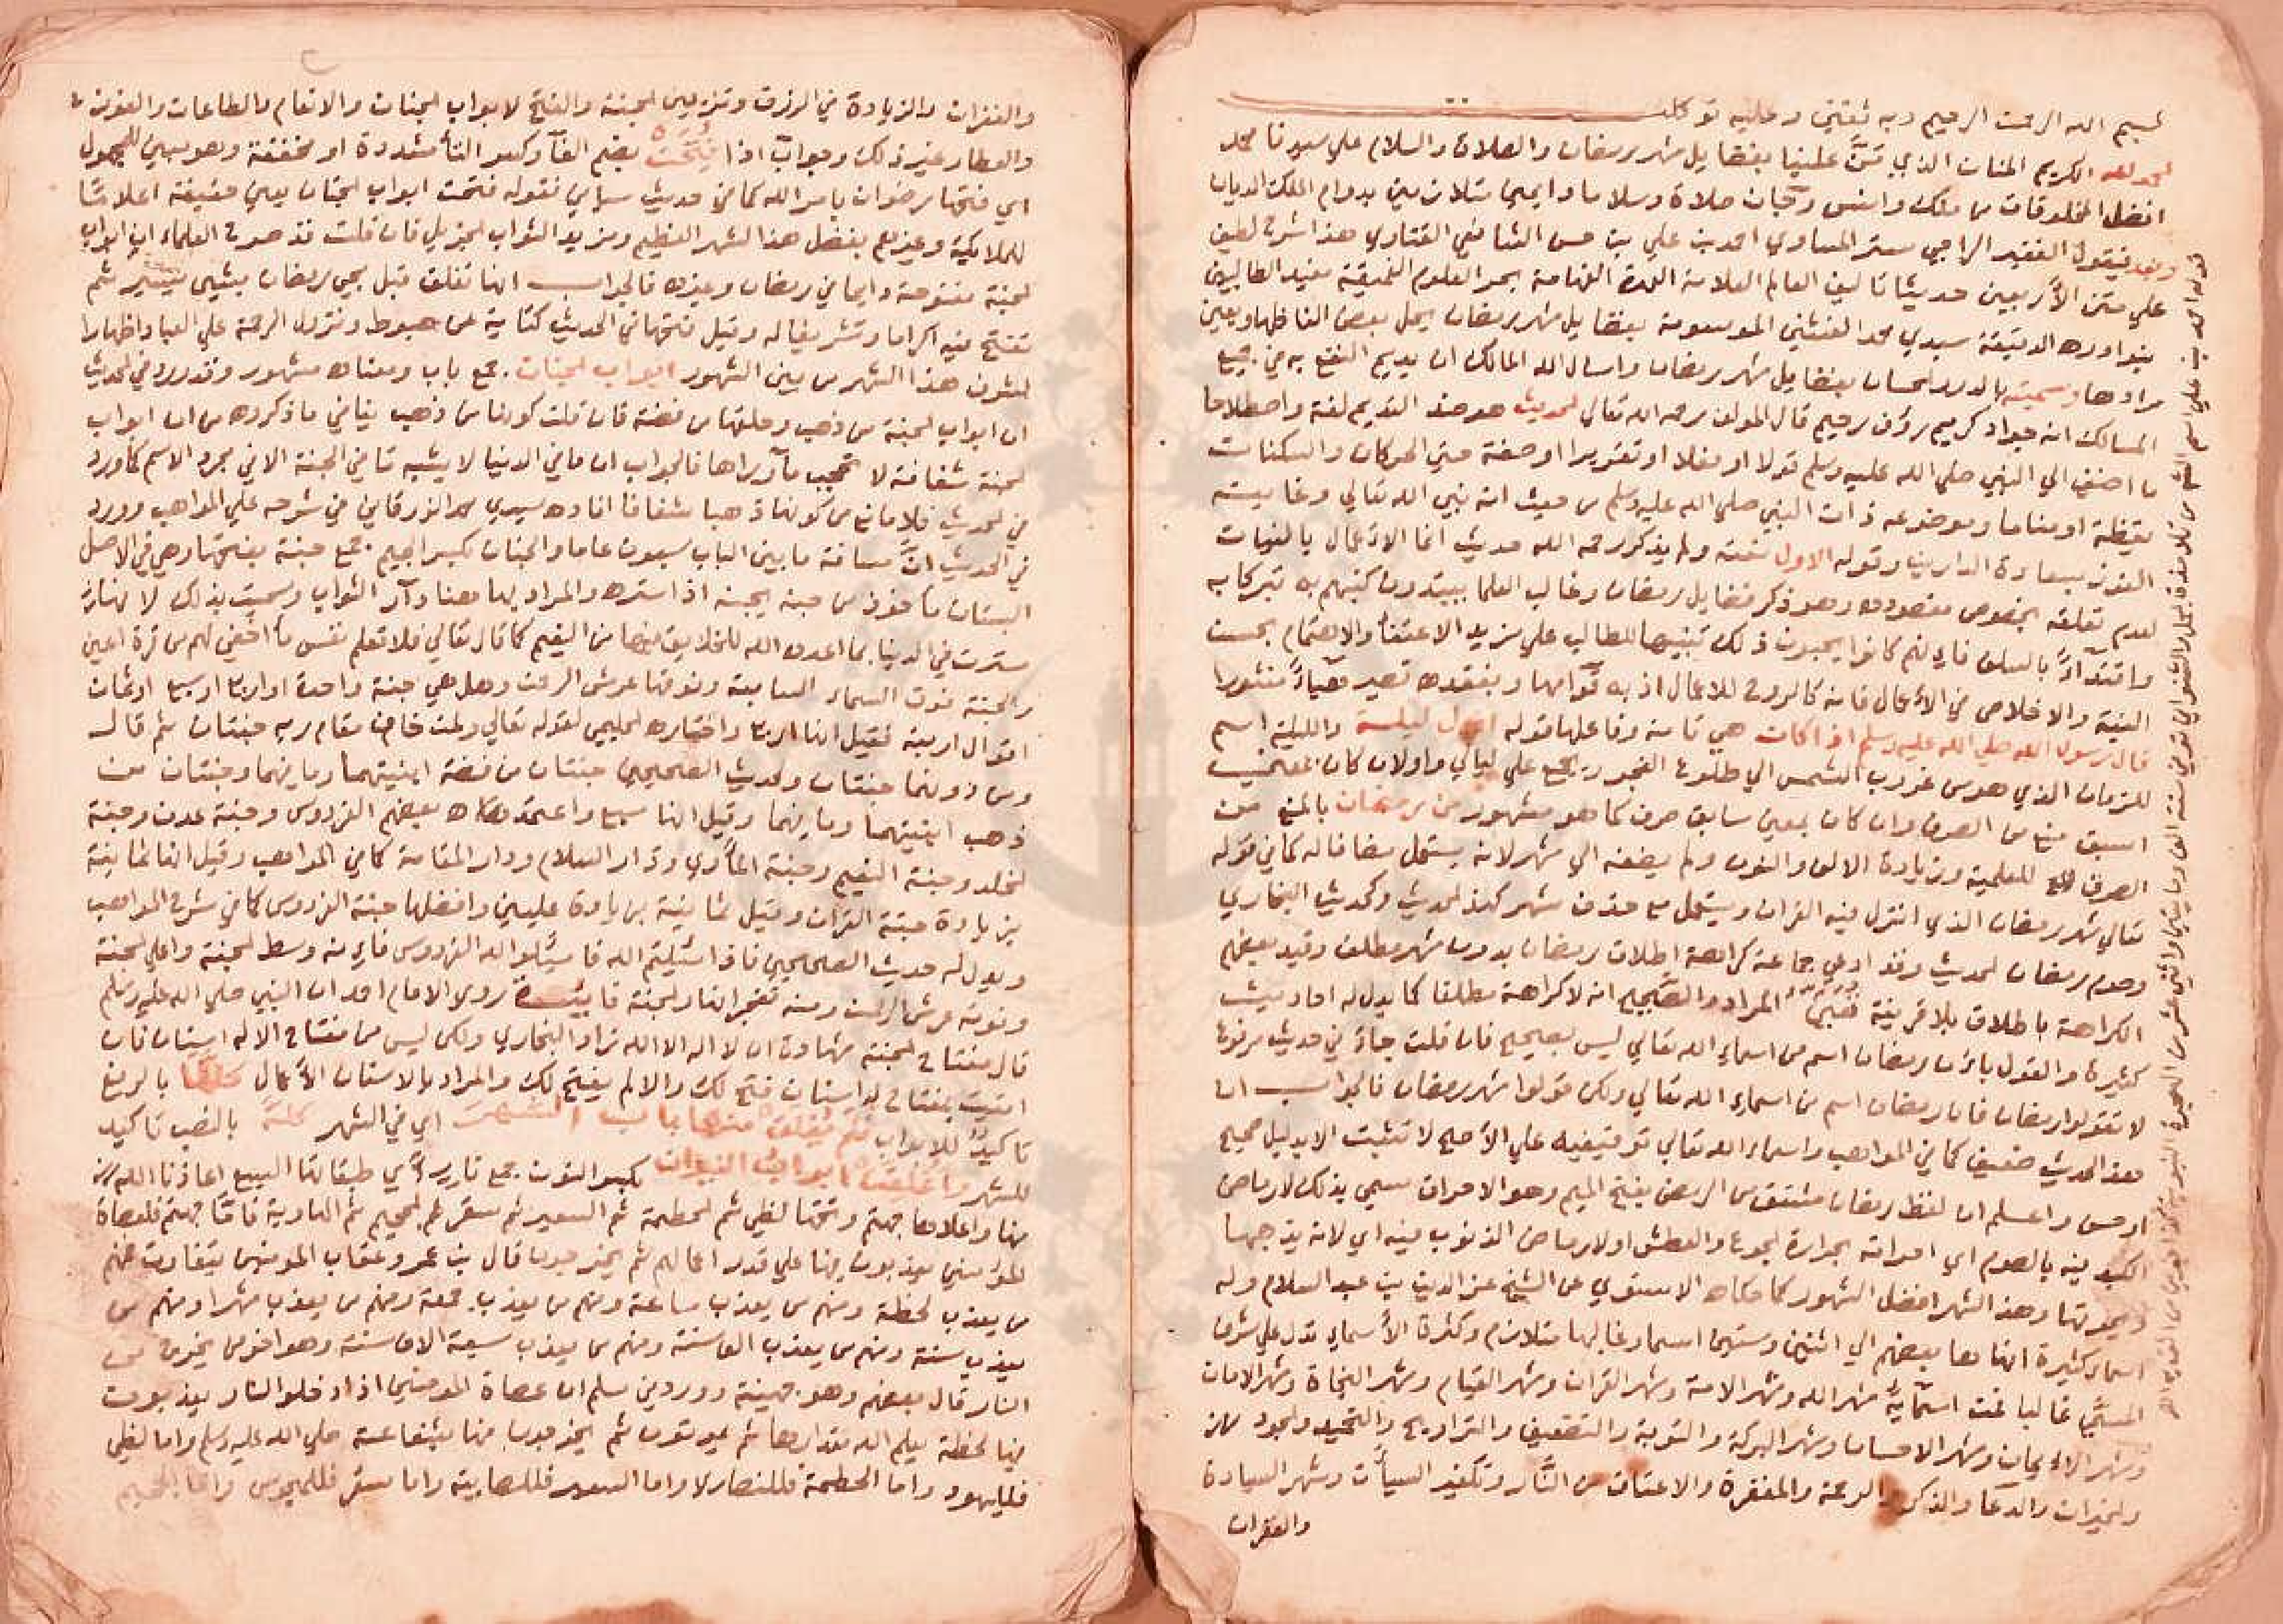 بسم الله الرحمن الرحيم وبه ثقتي وعليه توكلت
الحمد لله الكريم المنان الذي منّ علينا بفضايل شهر رمضان والصلاة والسلام علي سيدنا محمد
افضل المخلوقات من ملك وانس وجان صلاة وسلاما دايمين متلازمين بدوام الملك الديان
وبعد فيقول الفقير الراجي ستر المساوي احمد بن علي بن حسن الشافعي هذا شرح لطيف
علي متن الأربعين حديثا تاليف العالم العلامة العمدة الفهامة بحر العلوم العميقة مفيد الطالبين
بنوادره الدقيقة سيدي محمد الفشني الموسومة بفضايل شهر رمضان يحل بعض الفاظها ويعين
مرادها وسميته بالدرر الحسان بفضايل شهر رمضان واسال الله المالك ان يديم النفع به في جميع
المسالك انه جواد كريم رؤف رحيم قال المولف رحمه الله تعالي الحديث هو ضد القديم لغة واصطلاحا
ما اضيف الي النبي صلي الله عليه وسلم قولا او فعلا او تقريرا او صفة حتي الحركات والسكنات
يقظة او مناما وموضوعه ذات النبي صلي الله عليه وسلم من حيث انه نبي الله تعالي وغايته
الفوز بسعادة الدارين وقوله الاول نعته ولم يذكر رحمه الله حديث انما الاعمال بالنيات
لعدم تعلقه بخصوص مقصوده وهو ذكر فضايل رمضان وغالب العلما يبتدون كتبهم به تبركا به
واقتداءً بالسلف فانهم كانوا يحبون ذلك تنبيها للطالب علي مزيد الاعتناء والاهتمام بحسن
النية والاخلاص في الأعمال فانه كالروح للاعمال اذ به قوامها وبفقده تصير هباءً منثورا
قال رسول الله صلي الله عليه وسلم اذا كانت هي تامة وفاعلها قوله اول ليلة والليلة اسم
للزمان الذي هو من غروب الشمس الي طلوع الفجر ويجمع علي ليالي واولان كان بمعني
اسبق منع من الصرف وان كان بمعني سابق صرف كما هو مشهور من رمضان بالمنع من
الصرف للعلمية وزيادة الالف والنون ولم يضفه الي شهر لانه يستعمل مضافا له كما في قوله
تعالي شهر رمضان الذي انزل فيه القران ويستعمل مع حذف شهر كهذا الحديث وكحديث البخاري
وصوم رمضان الحديث وقد ادعي جماعة كراهة اطلاق رمضان بدون شهر مطلقا وقيد بعضهم
الكراهة باطلاق بلا قرينة تبين المراد والصحيح انه لا كراهة مطلقا كما يدل له احاديث
كثيرة والقول بان رمضان اسم من اسماء الله تعالي ليس بصحيح فان قلت جاء في حديث مرفوع
لا تقولوا رمضان فان رمضان اسم من اسماء الله تعالي ولكن قولوا شهر رمضان فالجواب ان
هذا الحديث ضعيف كما في المواهب واسماء الله تعالي توقيفية علي الأصح لا تثبت الا بدليل صحيح
او حسن واعلم ان لفظ رمضان مشتق من الرمض بفتح الميم وهو الاحراق سمي بذلك لارماض
الكبد فيه بالصوم اي احراقه بحرارة الجوع والعطش او لارماض الذنوب فيه اي لانه يذهبها
ويحرقها وهذا الشهر افضل الشهور كما حكاه الاسنوي عن الشيخ عز الدين بن عبد السلام وله
اسماء كثيرة انهاها بعضهم الي اثنين وستين اسما وغالبها متلازم وكثرة الأسماء تدل علي شرف
المسمّي غالبا فمن اسمايه شهر الله وشهر الامة وشهر القران وشهر القيام وشهر النجاة وشهر الامان
وشهر الايمان وشهر الاحسان وشهر البركة والتوبة والتضعيف والتراويح والتحميد والجود
والخيرات والدعا والذكر والرحمة والمغفرة والاعتاق من النار وتكفير السيأت وشهر السيادة
والغفران
والغفران والزيادة في الرزق وتزيين الجنة والفتح لابواب الجنان والانعام والطاعات والفوز
والعطا وغير ذلك وجواب اذا فُتِحَتْ بضم الفا وكسر التأ مشددة او مخففة وهو مبني للمجهول
اي فتحها رضوان بامر الله كما في حديث سياتي فقوله فتحت ابواب الجنان يعني حقيقة اعلامًا
للملايكة وغيرهم بفضل هذا الشهر العظيم ومزيد الثواب الجزيل فان قلت قد صرح العلماء ان ابواب
الجنة مفتوحة دايما في رمضان وغيره فالجواب انها تغلق قبل مجي رمضان بشي يسير ثم
تفتح فيه اكراما وتشريفا له وقيل فتحها في الحديث كناية عن هبوط ونزول الرحمة علي العباد اظهارا
لشرف هذا الشهر من بين الشهور ابواب الجنات جمع باب ومعناه مشهور وقد ورد في الحديث
ان ابواب الجنة من ذهب وحلقها من فضة فان قلت كونها من ذهب ينافي ما ذكروه من ان ابواب
الجنة شفافة لا تحجب ما وراها فالجواب ان ما في الدنيا لا يشبه ما في الجنة الا في مجرد الاسم كما ورد
في الحديث فلا مانع من كونها ذهبا شفافا افاده سيدي محمد الزرقاني في شرحه علي المواهب وورد
في الحديث انّ مسافة ما بين الباب سبعون عاما والجنان بكسر الجيم جمع جنة بفتحها وهي في الاصل
البستان مأخوذ من جنه يجنه اذا ستره والمراد بها هنا دار الثواب وسميت بذلك لانها
سترت في الدنيا بما اعده الله للخلايق فيها من النعيم كما قال تعالي فلا تعلم نفس ما اخفي لهم من قرة اعين
والجنة فوق السماء السابعة وفوقها عرش الرحمن وهل هي جنة واحدة او اربع او سبع او ثمان
اقوال اربعة فقيل انها اربع واختاره الحليمي لقوله تعالي ولمن خاف مقام ربه جنتان ثم قال
ومن دونهما جنتان ولحديث الصحيحين جنتان من فضة انيتهما وما فيهما وجنتان من
ذهب انيتهما وما فيهما وقيل انها سبع واعتمده بعضهم الفردوس وجنة عدن وجنة
الخلد وجنة النعيم وجنة المأوي ودار السلام ودار المقامة كما في المواهب وقيل انها ثمانية
بزيادة جنة القران وقيل ثمانية بزيادة عليين وافضلها جنة الفردوس كما في شرح المواهب
ويدل له حديث الصحيحين فاذا سئلتم الله فاسئلوا الله الفردوس فانه وسط الجنة واعلي الجنة
وفوقه عرش الرحمن ومنه تفجر انهار الجنة فائدة روي الامام احمد ان النبي صلي الله عليه وسلم
قال مفتاح الجنة شهادة ان لا اله الا الله زاد البخاري ولكن ليس من مفتاح الا له اسنان فان
اتيت بمفتاح له اسنان فتح لك والا لم يفتح لك والمراد بالاسنان الأعمال كلها بالرفع
تاكيد للابواب فلم يُغلق منها باب الشهر اي في الشهر كله بالنصب تاكيد
للشهر واُغلقت ابواب النيران بكسر النون جمع نار اي طبقاتها السبع اعاذنا الله
منها واعلاها جهنم وتحتها لظي ثم الحطمة ثم السعير ثم سقر ثم الجحيم ثم الهاوية فامّا جهنم فلعصاة
المؤمنين يعذبون فيها علي قدر اعمالهم ثم يخرجون قال بن عمر وعقاب المومنين يتفاوت فمنهم
من يعذب لحظة ومنهم من يعذب ساعة ومنهم من يعذب جمعة ومنهم من يعذب شهرا ومنهم من
يعذب سنة ومنهم من يعذب الف سنة ومنهم من يعذب سبعة الاف سنة وهو اخر من يخرج من
النار قال بعضهم وهو جهينة وورد في مسلم ان عصاة المومنين اذا دخلوا النار يعذبون
فيها لحظة يعلم الله مقدارها ثم يموتون ثم يخرجون منها بشفاعته صلي الله عليه وسلم واما لظي
فلليهود واما الحطمة فللنصاري واما السعير فللصابية واما سقر فللمجوس واما الجحيم